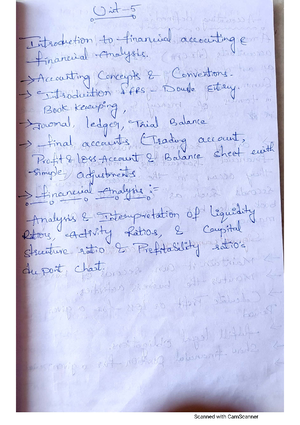 Unit-5
Introduction to financial accounting &
financial Analysis.
→ Accounting Concepts & Conventions.
→ Introduction IFRS - Double Entry
Book Keeping,
→ Journal, ledger, Trial Balance
→ Final accounts (Trading account,
Profit & Loss Account & Balance sheet with
simple adjustments
→ Financial Analysis :-
Analysis & Interpretation of liquidity
Ratios, Activity Ratios, & Caupital
structure ratio & Profitability ratio's
du pont chart.
Scanned with CamScanner